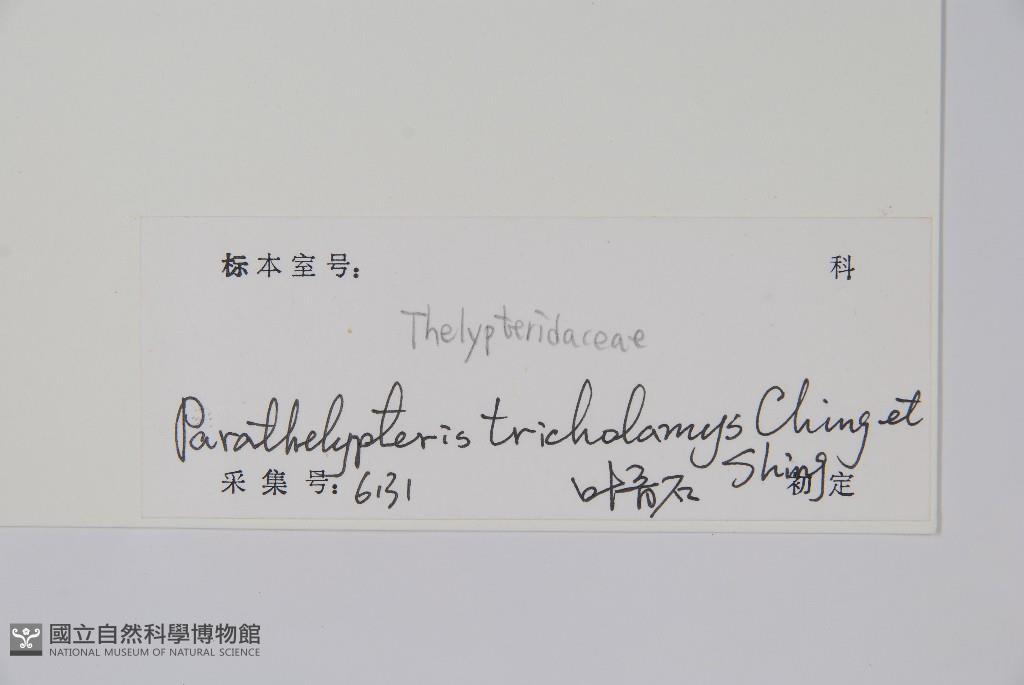 标本室号: 科
Thelypteridaceae
Parathelypteris tricholamys Ching et
Shing
采集号: 6131 叶育石 初定
國立自然科學博物館
NATIONAL MUSEUM OF NATURAL SCIENCE